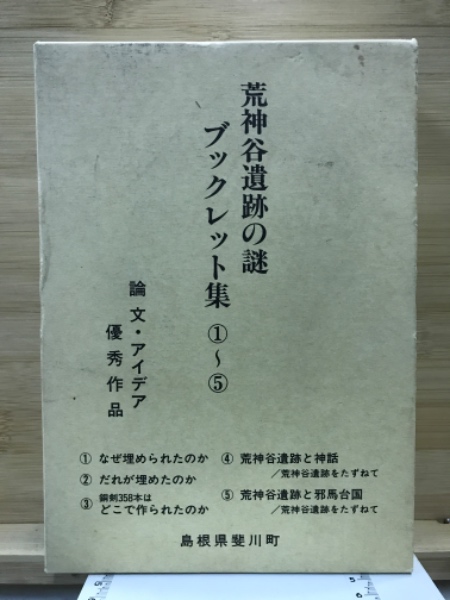 荒神谷遺跡の謎
ブックレット集①~⑤
論文・アイデア
優秀作品
① なぜ埋められたのか
② だれが埋めたのか
③ 銅剣358本は
どこで作られたのか
④ 荒神谷遺跡と神話
／荒神谷遺跡をたずねて
⑤ 荒神谷遺跡と邪馬台国
／荒神谷遺跡をたずねて
島根県斐川町